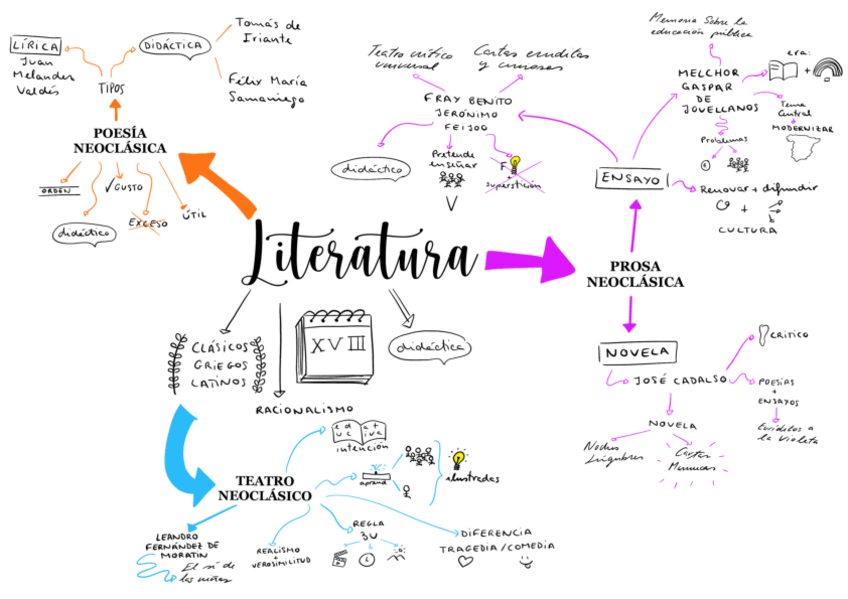 LÍRICA
Juan
Melandes
Valdés
TIPOS
DIDÁCTICA
Tomás de
Iriante
Félix María
Samaniego
POESÍA
NEOCLÁSICA
ORDEN
didáctico
✓GUSTO
EXCESO
ÚTIL
Teatro crítico
universal
Cartas eruditas
y curiosas
FRAY BENITO
JERÓNIMO
FEIJOO
didáctico
Pretende
enseñar
F
+
superstición
Memoria sobre la
educación pública
MELCHOR
GASPAR
DE
JOVELLANOS
era:
+
Tema
Central
MODERNIZAR
Problemas
ENSAYO
Renovar + difundir
+
CULTURA
Literatura
PROSA
NEOCLÁSICA
CLÁSICOS
GRIEGOS
LATINOS
XVIII
didáctica
RACIONALISMO
NOVELA
JOSÉ CADALSO
CRITICO
POESÍAS
+
ENSAYOS
Eruditos a
la Violeta
NOVELA
Noches
Lúgubres
Cartas
Marruecas
TEATRO
NEOCLÁSICO
educativa
intención
aprend
ilustradas
LEANDRO
FERNÁNDEZ DE
MORATIN
El sí de
las niñas
REALISMO
+
VEROSIMILITUD
REGLA
3U
DIFERENCIA
TRAGEDIA/COMEDIA